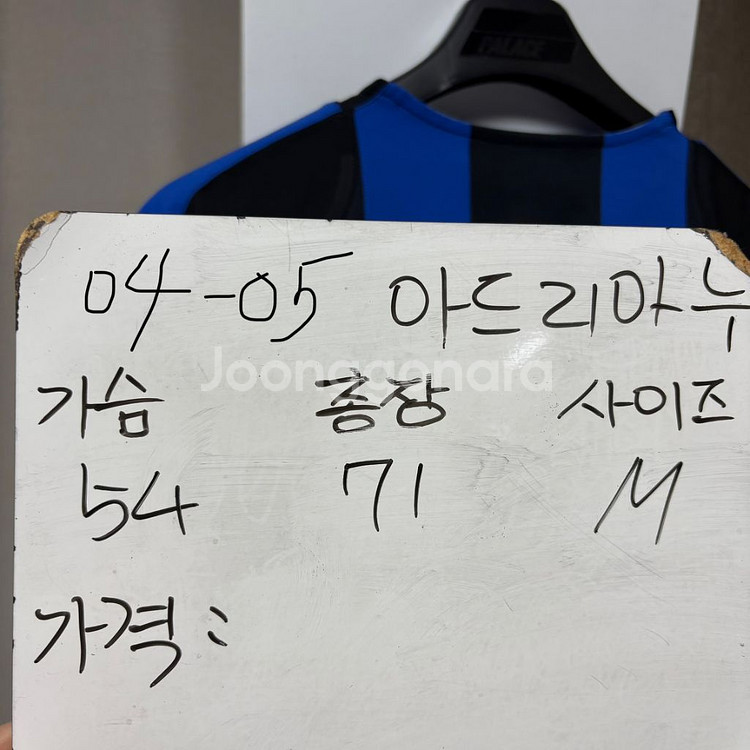 PALACE
04-05 아드리아누
Joonggonara
가슴 총장 사이즈
54 71 M
가격: